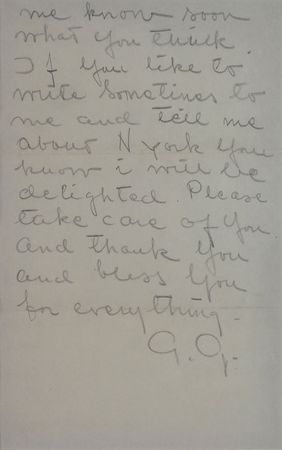 me know soon
what you think
If you like to
write sometimes to
me and tell me
about N york you
know i will be
delighted. Please
take care of you.
and thank you
and bless you
for everything -
G. G.